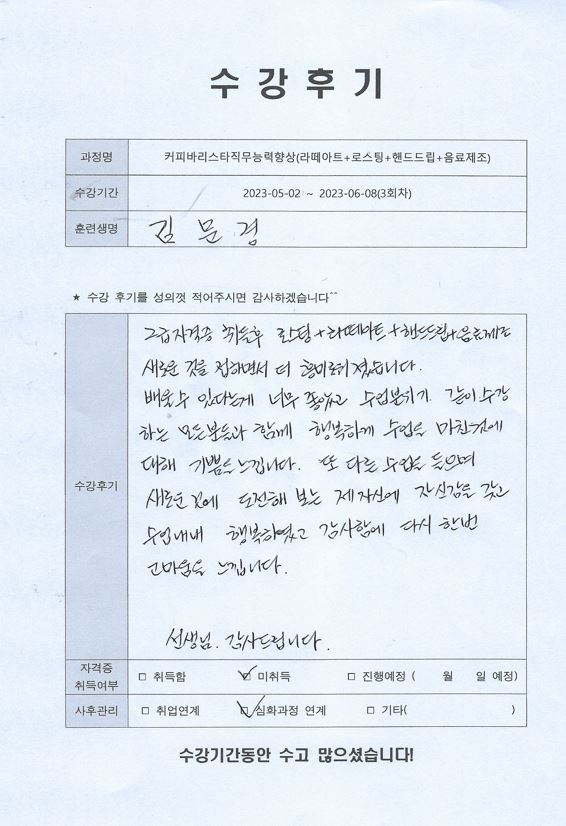 수강후기
과정명 커피바리스타직무능력향상(라떼아트+로스팅+핸드드립+음료제조)
수강기간 2023-05-02 ~ 2023-06-08(3회차)
훈련생명 김문경
★ 수강 후기를 성의껏 적어주시면 감사하겠습니다^^
수강후기
2급자격증 취득후 로스팅+라떼아트+핸드드립+음료제조
새로운 것을 접하면서 더 흥미로워졌습니다.
배울수 있다는게 너무 좋았고 수업분위기 같이수강
하는 모든분들과 함께 행복하게 수업을 마친것에
대해 기쁨을느낍니다. 또 다른 수업을 들으며
새로운 것에 도전해 보는 제자신에 자신감을 갖고
수업내내 행복하였고 감사함에 다시 한번
고마움을 느낍니다.
선생님. 감사드립니다.
자격증
취득여부 □ 취득함 □ 미취득 □ 진행예정 ( 월 일 예정)
사후관리 □ 취업연계 □ 심화과정 연계 □ 기타( )
수강기간동안 수고 많으셨습니다!